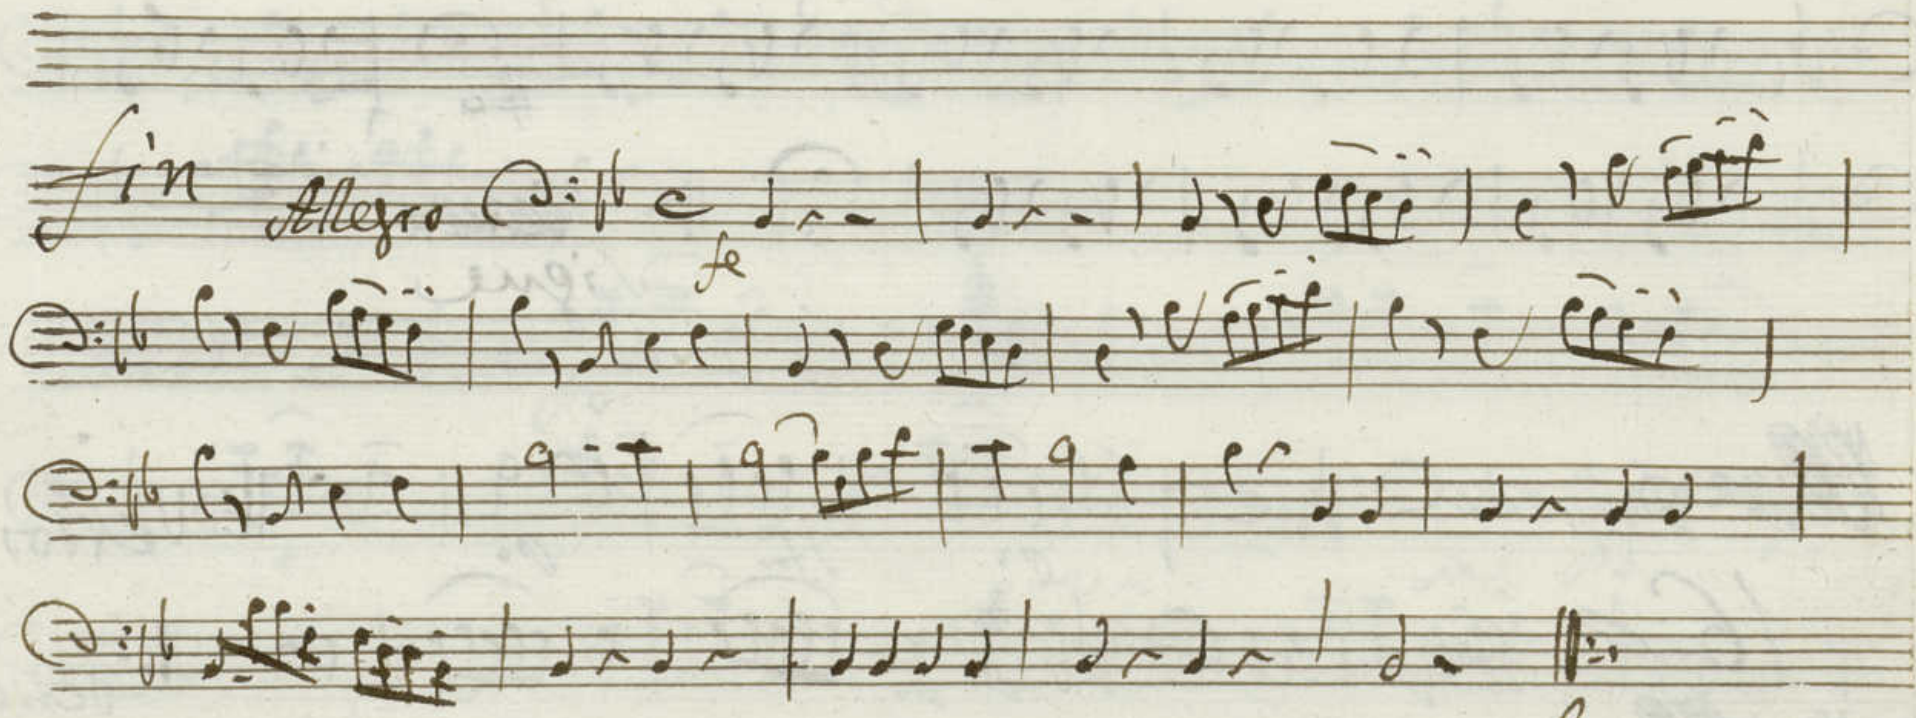 fin Allegro
fe